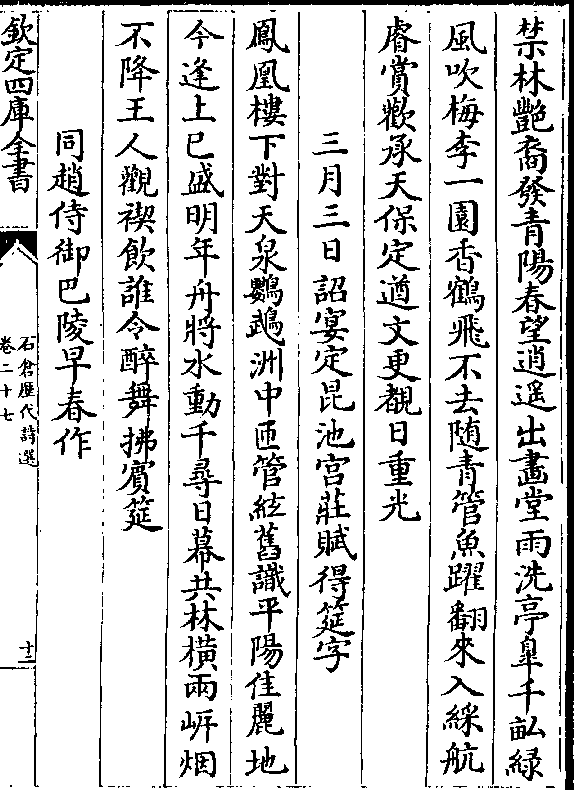 禁林艷裔發青陽春望逍遥出畫堂雨洗亭臯千畝緑
風吹梅李一園香鶴飛不去随青管魚躍翻來入綵航
睿賞歡承天保定遒文更覩日重光
三月三日詔宴定昆池宫莊賦得筵字
鳳凰樓下對天泉鸚鵡洲中匝管絃舊識平陽佳麗地
今逢上巳盛明年舟將水動千尋日幕共林橫兩岍烟
不降王人觀禊飲誰令醉舞拂賓筵
同趙侍御巴陵早春作
欽定四庫全書
石倉歴代詩選
卷二十七
十二